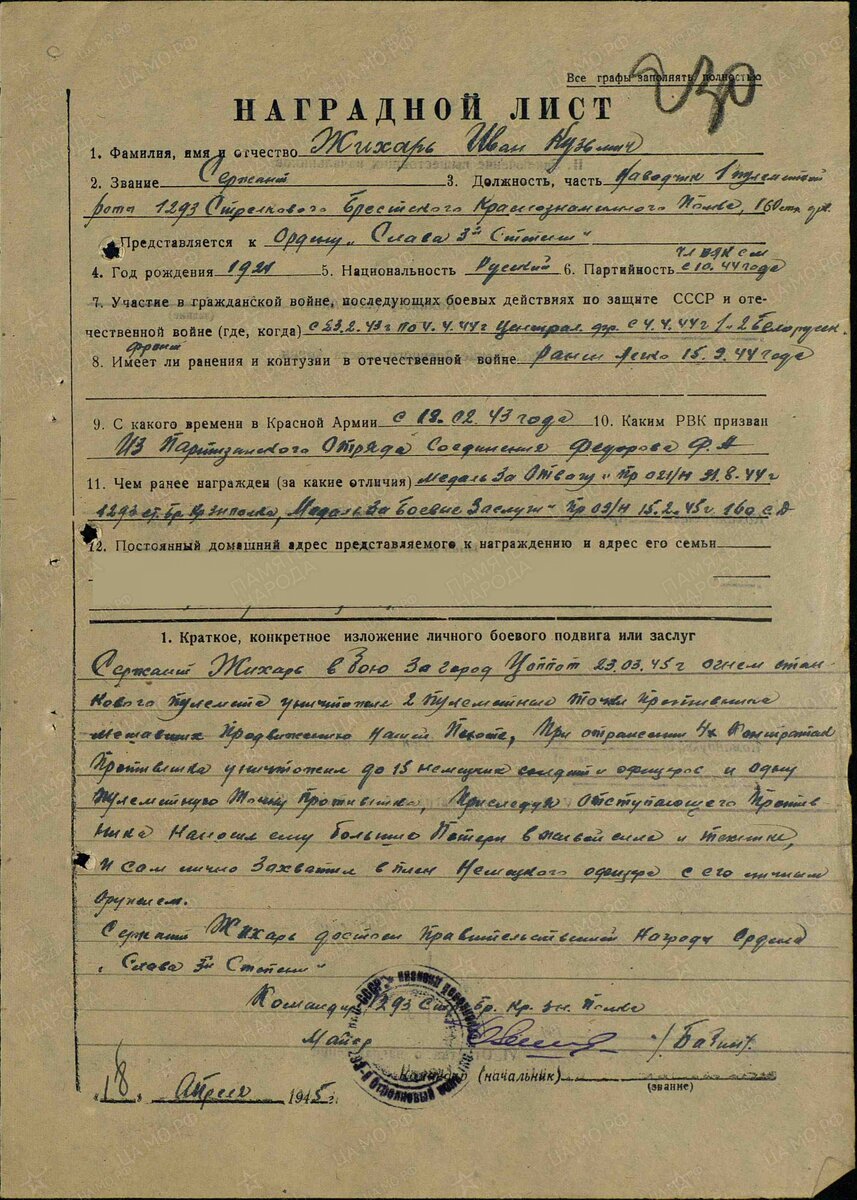 230
Все графы заполнять полностью
НАГРАДНОЙ ЛИСТ
1. Фамилия, имя и отчество Жихарь Иван Кузьмич
2. Звание Сержант 3. Должность, часть Наводчик 1 пулеметной
рота 1293 Стрелкового Брестского Краснознаменного Полка, 160 стр. див.
Представляется к Ордену „Слава 3й Степени"
чл ВКП см
4. Год рождения 1921 5. Национальность Русский 6. Партийность с 10.44 года
7. Участие в гражданской войне, последующих боевых действиях по защите СССР и оте-
чественной войне (где, когда) с 23.2.43г по 4.4.44г Централ. фр. с 4.4.44г 1и2 Белорусск.
фронт
8. Имеет ли ранения и контузии в отечественной войне Ранен легко 15.9.44 года
9. С какого времени в Красной Армии с 18.02.43 года 10. Каким РВК призван
Из Партизанского Отряда Соединения Федорова Ф.А
11. Чем ранее награжден (за какие отличия) Медаль За Отвагу" Пр 021/н 31.8.44г
1293 ст. Бр. Кр Зн полка, Медаль За Боевые Заслуги" Пр 02/н 15.2.45г. 160 с Д
12. Постоянный домашний адрес представляемого к награждению и адрес его семьи
1. Краткое, конкретное изложение личного боевого подвига или заслуг
Сержант Жихарь в бою за город Цоппот 23.03.45г огнем стан-
кового пулемета уничтожил 2 пулеметные точки Противника
мешавших Продвижению нашей Пехоте, При отражении 4х Контратак
Противника уничтожил до 15 немецких солдат и офицеров и одну
Пулеметную Точку Противника, Приследуя Отступающего Против
ника Наносил ему большие Потери в живой силе и технике,
И сам лично Захватил в плен Немецкого офицера с его личным
оружием.
Сержант Жихарь достоин Правительственной Награды Ордена
„Слава 3й Степени"
Командир 1293 Стр. Бр. Кр. Зн. Полка
Майор /
Командир (начальник)
(звание)
„18" Апреля 1945 г.